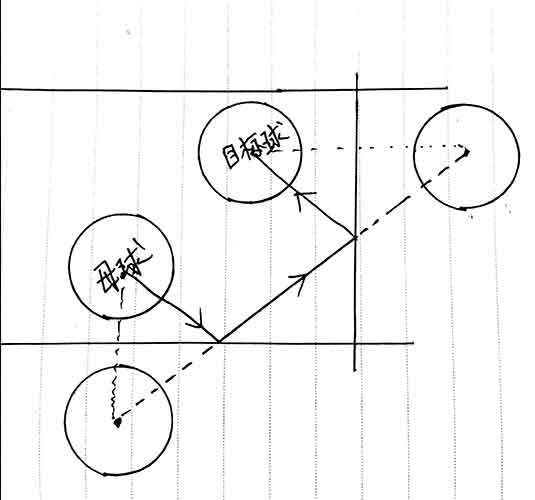 目标球
母球